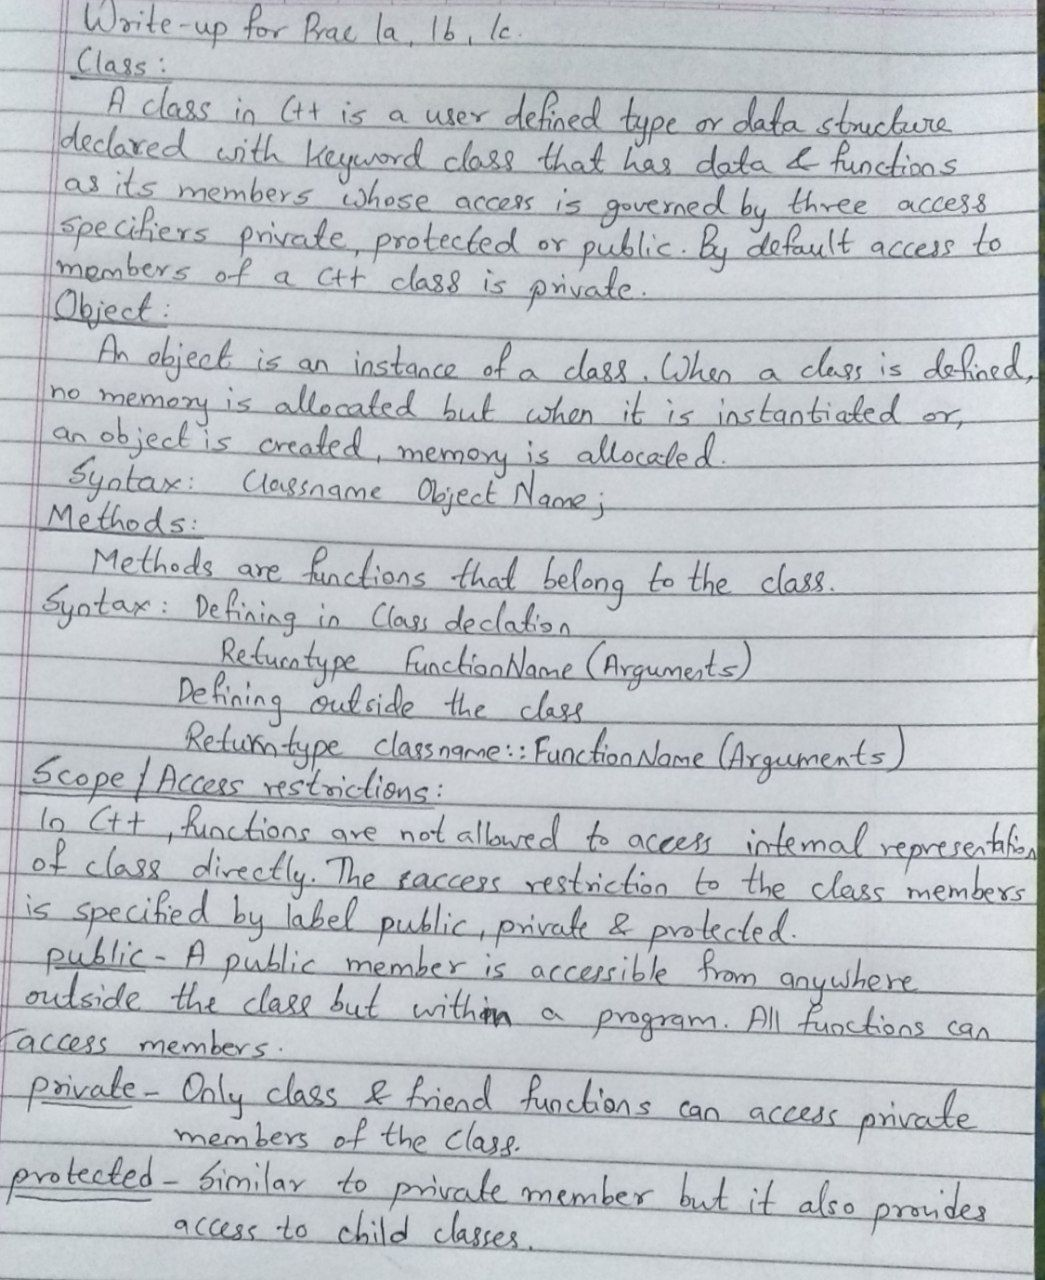 Write-up for Prac 1a, 1b, 1c.
Class:
A class in C++ is a user defined type or data structure
declared with keyword class that has data & functions
as its members whose access is governed by three access
specifiers private, protected or public. By default access to
members of a C++ class is private.
Object:
An object is an instance of a class. When a class is defined,
no memory is allocated but when it is instantiated or,
an object is created, memory is allocated.
Syntax: Classname Object Name;
Methods:
Methods are functions that belong to the class.
Syntax: Defining in Class declation
Returntype FunctionName (Arguments)
Defining outside the class
Returntype classname::FunctionName (Arguments)
Scope / Access restrictions:
In C++, functions are not allowed to access internal representation
of class directly. The access restriction to the class members
is specified by label public, private & protected.
public - A public member is accessible from anywhere
outside the class but within a program. All functions can
access members.
private - Only class & friend functions can access private
members of the class.
protected - Similar to private member but it also provides
access to child classes.